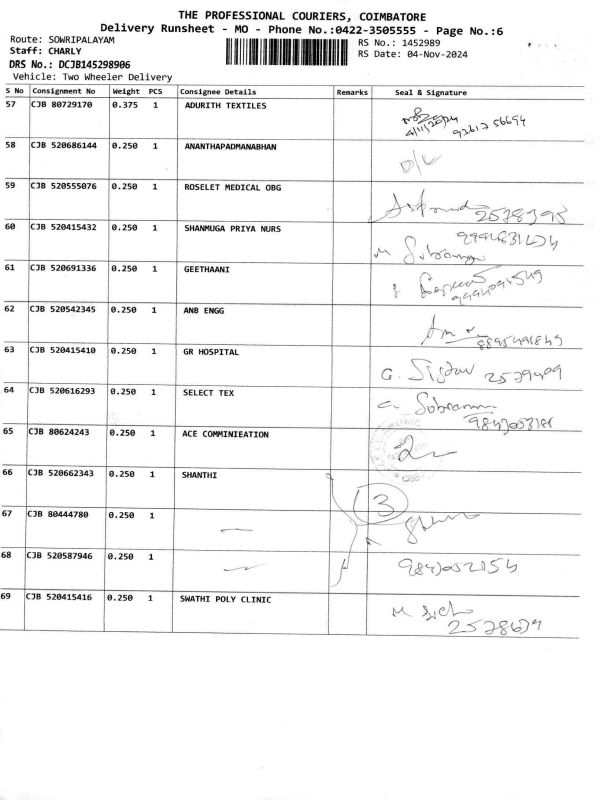 THE PROFESSIONAL COURIERS, COIMBATORE
Delivery Runsheet - MO - Phone No.:0422-3505555 - Page No.:6
Route: SOWRIPALAYAM
RS No.: 1452989
Staff: CHARLY
RS Date: 04-Nov-2024
DRS No.: DCJB145298906
Vehicle: Two Wheeler Delivery
S No Consignment No Weight PCS Consignee Details Remarks Seal & Signature
57 CJB 80729170 0.375 1 ADURITH TEXTILES
4/11/2024 93617 56694
58 CJB 520686144 0.250 1 ANANTHAPADMANABHAN
D/L
59 CJB 520555076 0.250 1 ROSELET MEDICAL OBG
60 CJB 520415432 0.250 1 SHANMUGA PRIYA NURS
61 CJB 520691336 0.250 1 GEETHAANI
62 CJB 520542345 0.250 1 ANB ENGG
63 CJB 520415410 0.250 1 GR HOSPITAL
64 CJB 520616293 0.250 1 SELECT TEX
65 CJB 80624243 0.250 1 ACE COMMINIEATION
66 CJB 520662343 0.250 1 SHANTHI
3
67 CJB 80444780 0.250 1
68 CJB 520587946 0.250 1
69 CJB 520415416 0.250 1 SWATHI POLY CLINIC